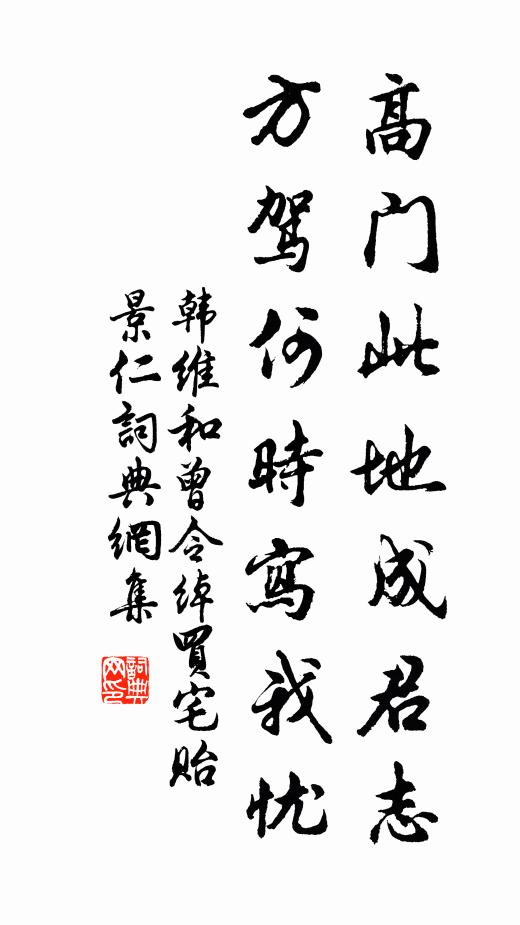 高门此地成君志
方驾何時寫我忧
韩维和曾令绰買宅贻
景仁詞典網集
詞典
网印